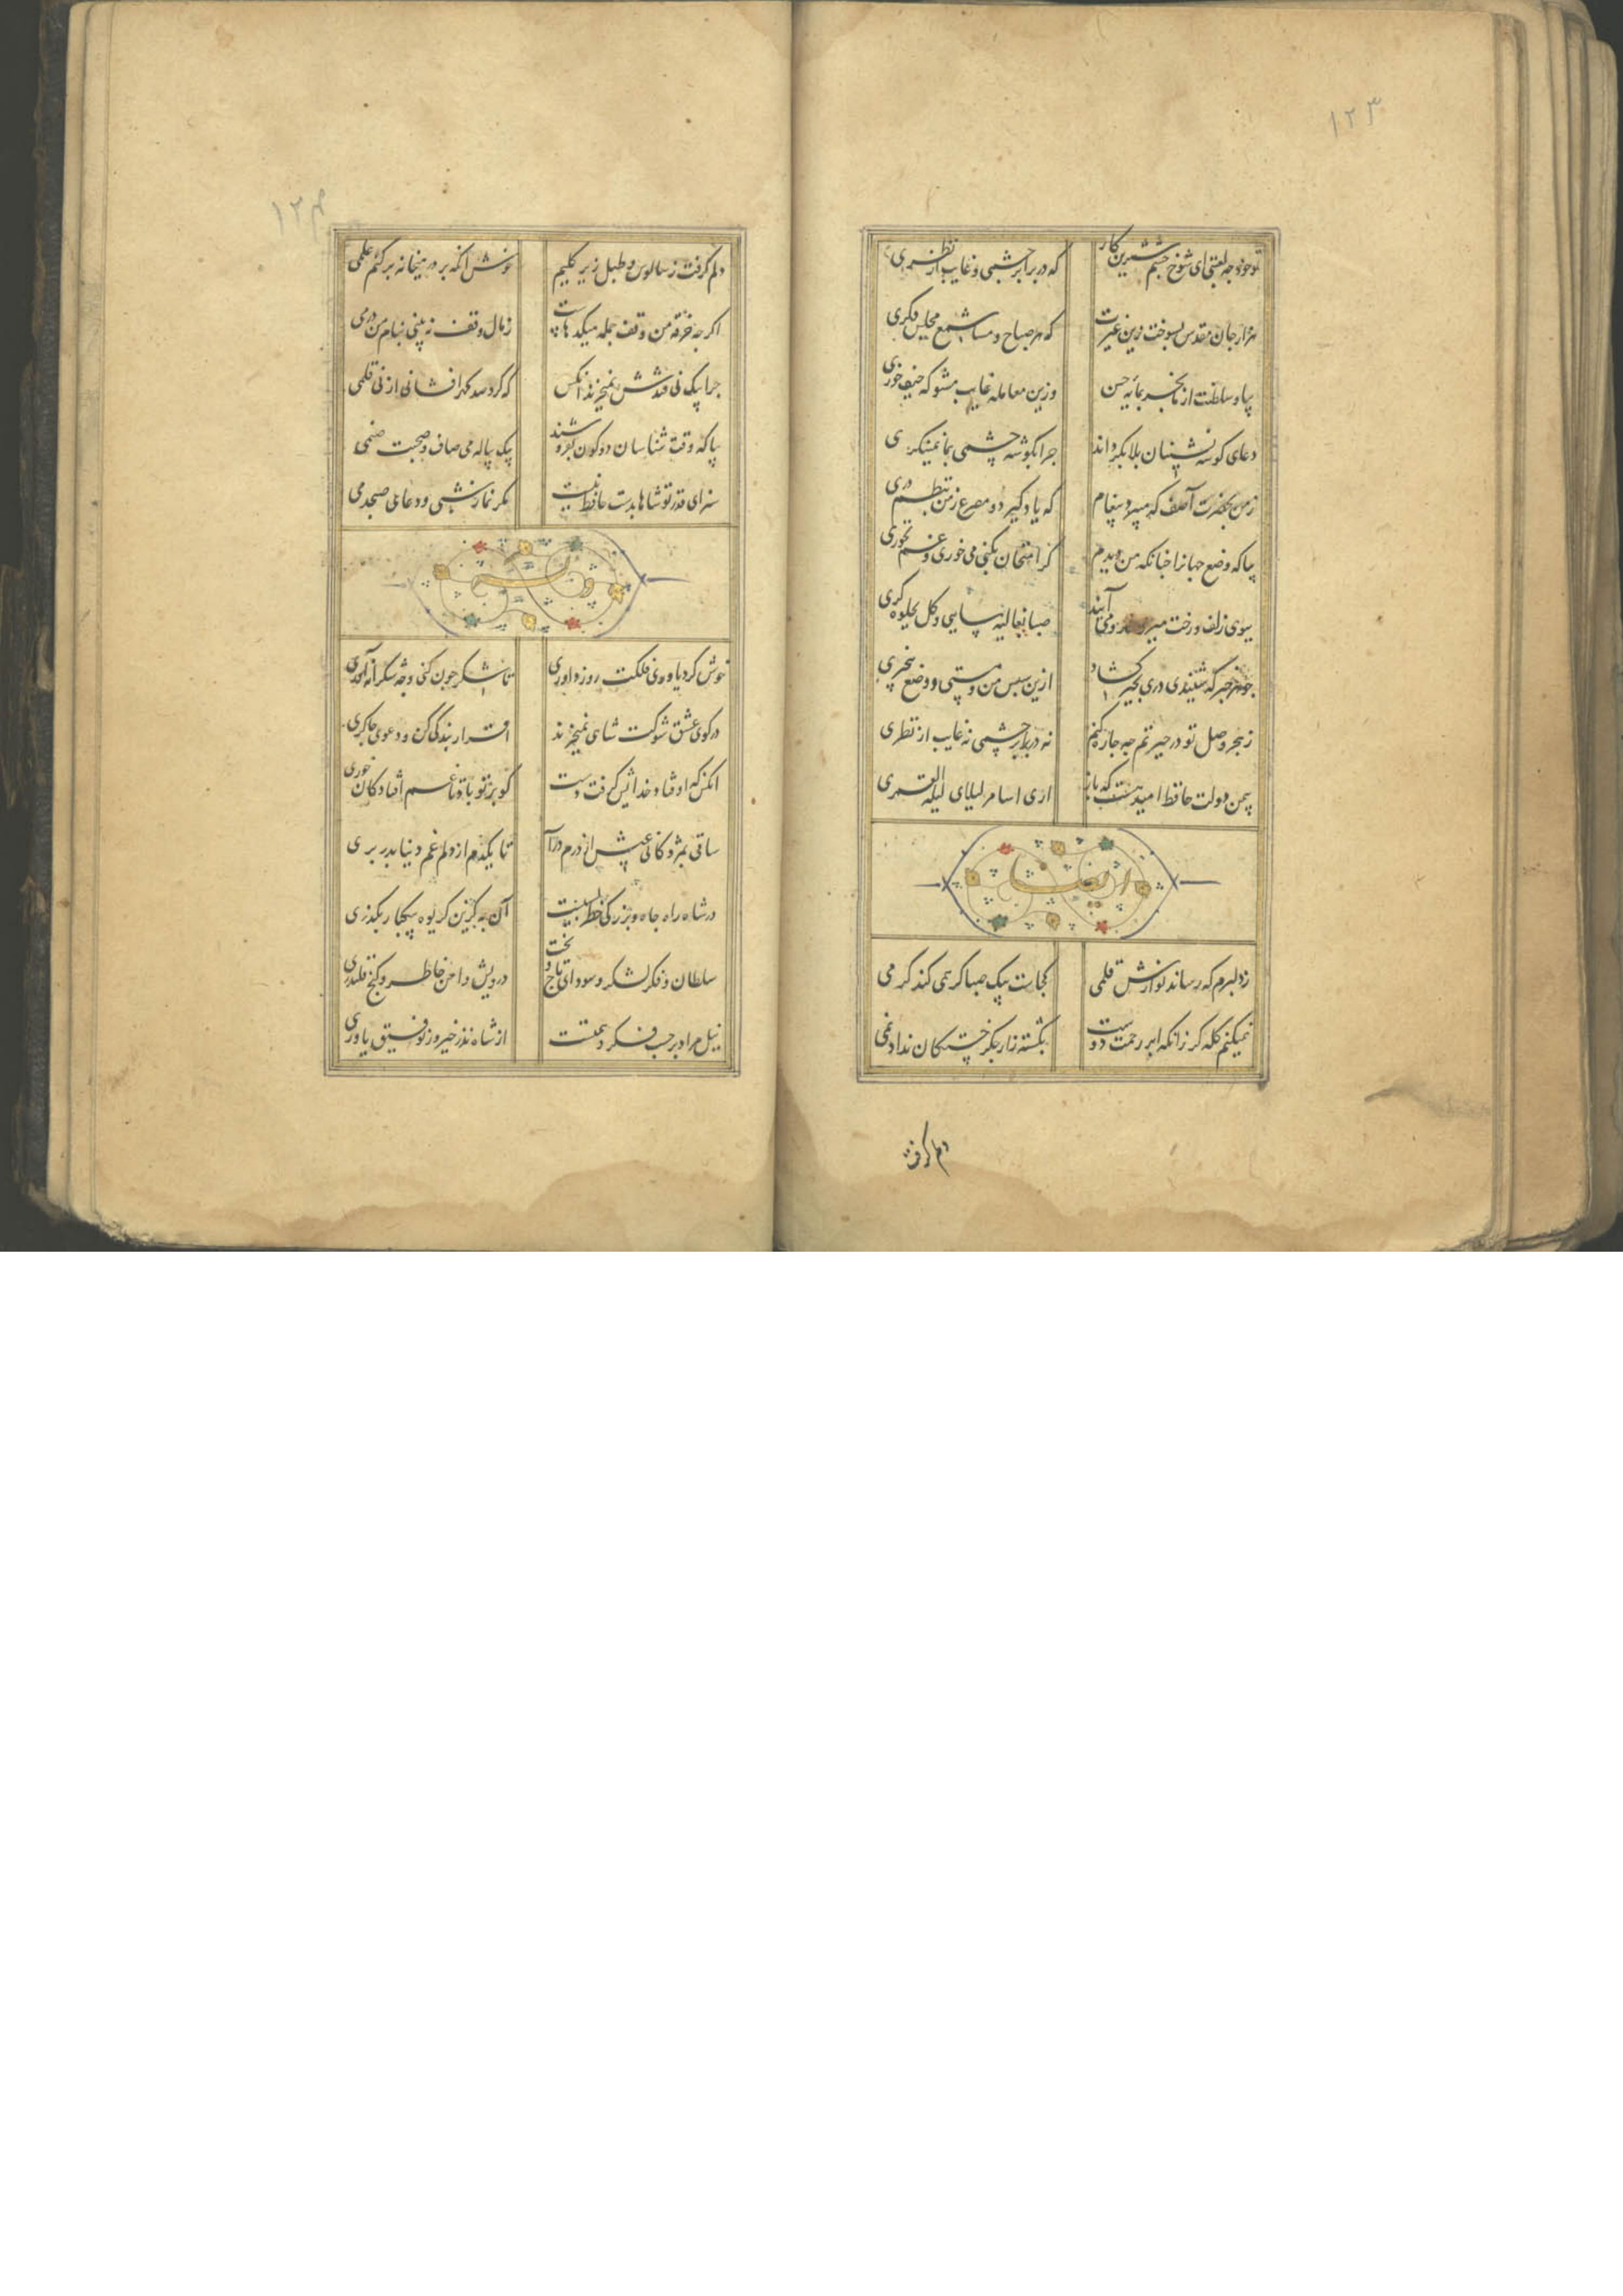 ۱۲۳
تو خود چه لعبتی ای شوخ چشم شیرین کار
که در برابر چشمی و غایب از نظری
هزار جان مقدس بسوخت زین غیرت
که هر صباح و مسا شمع مجلس دکری
بیا و سلطنت از ما بخر بمایه حسن
وزین معامله غایب مشو که حیف خوری
دعای کوشه نشینان بلا بکرداند
چرا بکوشه چشمی بما نمینکری
زمن بحضرت آصف که میبرد پیغام
که یاد کیر دو مصرع زمن بنظم دری
بیا که وضع جهانرا چنانکه من دیدم
کر امتحان بکنی می خوری و غم نخوری
ببوی زلف و رخت میروند و می آیند
صبا بغالیه سایی و کل بجلوه کری
چو هر خبر که شنیدی دری بحیرت کشاد
ازین سپس من و مستی و وضع بیخبری
زهجر و وصل تو در حیرتم چه چاره کنم
نه در برابر چشمی نه غایب از نظری
بیمن دولت حافظ امید هست که باز
اری اسامر لیلای لیلة القمری
ایضا
زدلبرم که رساند نوازش قلمی
کجاست پیک صبا کر همی کند کرمی
نمیکنم کله کرزانکه ابر رحمت دوست
بکشته زار جکر خستکان نداد نمی
دلم کرفت
۱۲۴
دلم کرفت زسالوس و طبل زیر کلیم
خوش انکه بر در میخانه برکنم علمی
اکرچه خرقه من وقف جمله میکدهاست
زمال وقف نه بینی بنام من درمی
چرا بیک نی قندش نمیخرند انکس
که کرد صد کهر افشانی از نی قلمی
بیا که وقت شناسان دو کون بفروشند
بیک پیاله می صاف و صحبت صنمی
سزای قدر تو شاها بدست حافظ نیست
مکر نماز شبی و دعای صبحدمی
خوش کرد یاوری فلکت روز داوری
تا شکر چون کنی و چه شکرانه آوری
در کوی عشق شوکت شاهی نمیخرند
اقرار بندکی کن و دعوی چاکری
انکس که اوفتاد خدایش کرفت دست
کو بر تو باد تا غم افتادکان خوری
ساقی بمژدکانی عیش از درم درآ
تا یکدم از دلم غم دنیا بدر بری
در شاه راه جاه و بزرکی خطر بسیست
آن به کزین کریوه سبکبار بکذری
سلطان و فکر لشکر و سودای تاج و تخت
درویش و امن خاطر و کنج قلندری
نیل مراد بر حسب فکر و همتست
از شاه نذر خیر و ز توفیق یاوری